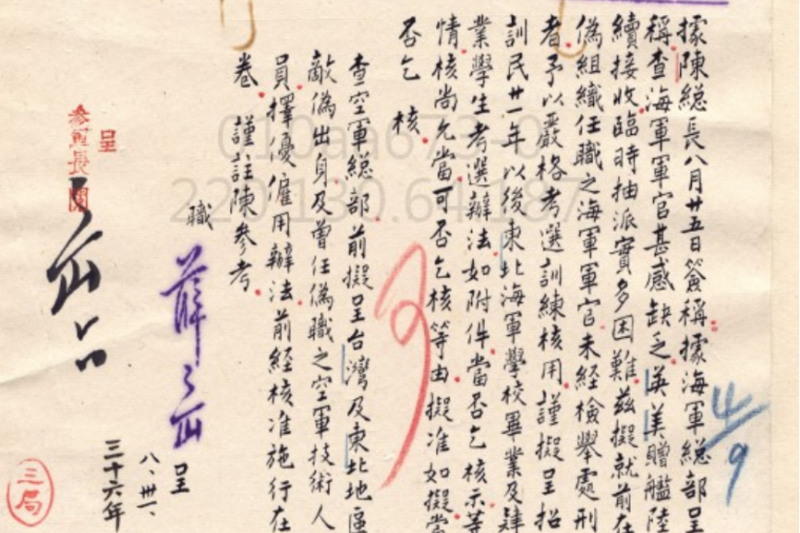 據陳總長八月廿五日簽稱據海軍總部呈
稱查海軍軍官甚感缺乏英美贈艦陸
續接收臨時抽派實多困難茲擬就前在
偽組織任職之海軍軍官未經檢舉處刑
者予以嚴格考選訓練核用謹擬呈招
訓民廿一年以後東北海軍學校畢業及肄
業學生考選辦法如附件當否乞核示等
情核尚允當可否乞核等由擬准如擬當
否乞核
查空軍總部前擬呈台灣及東北地區
敵偽出身及曾任偽職之空軍技術人
員擇優僱用辦法前經核准施行在
卷謹註陳參考
職薛岳呈
八、卅一、
三十六年
呈
參軍長閱
三局
4/9
010aa673-0
220.130.64.187